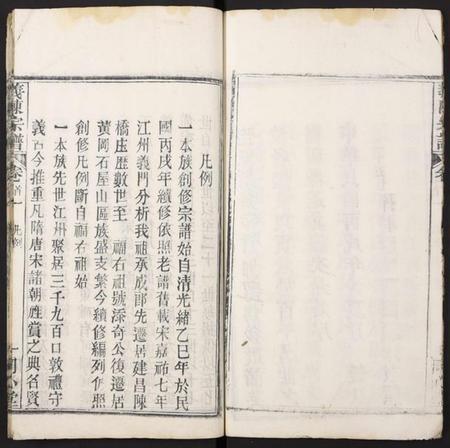 凡例
一本族創修宗譜始自清光緒乙巳年於民
國丙戌年續修依照老譜舊載宋嘉祐七年
江州義門分析我祖承成郎先遷居建昌陳
橋庄歷數世至 福右祖號添奇公復遷居
黃岡石屋山區族盛支繁今續修編列仍照
創修凡例斷自福右祖始
一本族先世江州聚居三千九百口敦禮守
義古今推重凡隋唐宋諸朝旌賞之典名賢
義陳宗譜 卷首 凡例